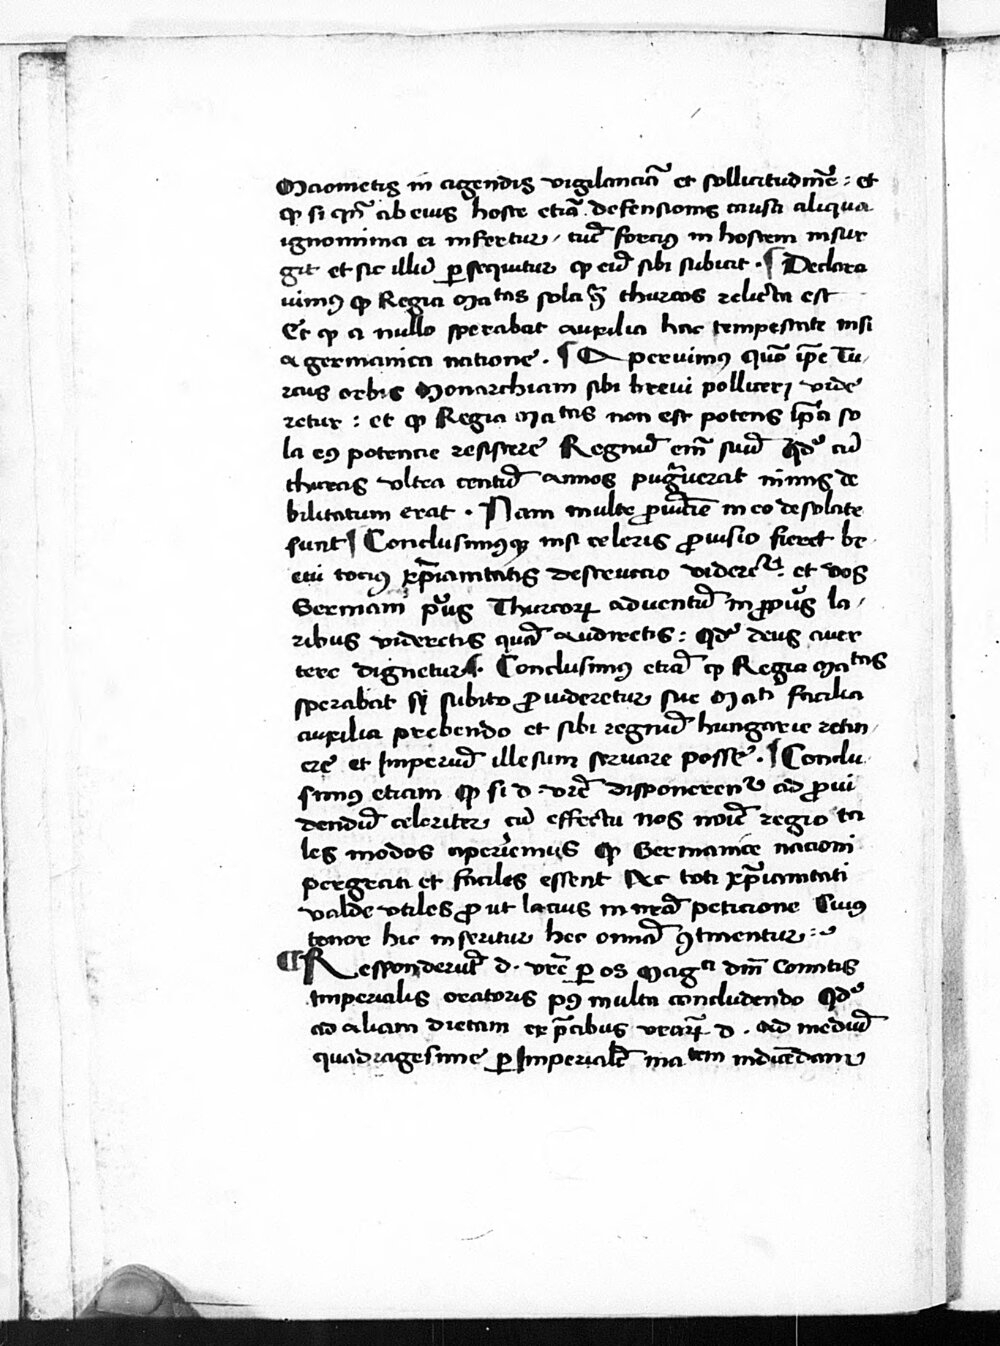 Maometis in agendis vigilanciā et sollicitudinē : et
ꝙ si qn̄ ab eius hoste etiā defensionis causa aliqua
ignominia ei infertur / tūc forcius in hostem insur
git et sic illū ꝑsequitur ꝙ eū sibi subicit · ¶ Declara
uimꝰ ꝙ Regia Matas sola thurcos relicta est
Et ꝙ a nullo sperabat auxilia hac tempestate nisi
a germanica natione · ¶ Aperuimꝰ quō ip̄e Tu/
rcus orbis Monarchiam sibi breui polliceri vide
retur : et ꝙ Regia Matas non est potens ip̄a so
la eꝰ potencie resistere Regnū em̄ suū qd̄ cū
thurcis vltra centū annos pugnauerat nimis de
bilitatum erat · Nam multe ꝓuincie in eo desolate
sunt ¶ Conclusimusqꝫ nisi celeris ꝓuisio fieret bre
eui tocius xp̄ianitatis destruccio videretur et vos
Germani prius Thurcoꝝ aduentū in ꝓprijs la/
ribus videretis quā audiretis : qd̄ deus auer
tere dignetur ¶ · Conclusimꝰ etiā ꝙ Regia Matas
sperabat si subito ꝓuideretur sue Mati facilia
auxilia prebendo et sibi regnū hungarie retin/
ere et Imperiū illesum seruare posse · ¶ Conclu
simꝰ etiam ꝙ si d · vr̄e disponerentur ad ꝓui
dendū celeriter cū effectu nos noīe regio ta
les modos aperiemus ꝙ Germanice nacioni
pergrati et faciles essent Ac toti xp̄ianitati
valde vtiles ꝓut lacius in nr̄a peticione Cuius
tenor hic inseritur hec omnia ꝯtinentur :~
¶ Responderūt d · vr̄e ꝑ os Magci dnī Comitis
Imperialis oratoris pꝰ multa concludendo qd̄
ad aliam dietam ex p̄cibus vr̄aꝝ d · ad mediū
quadragesime ꝑ Imperialē matem indicēdam